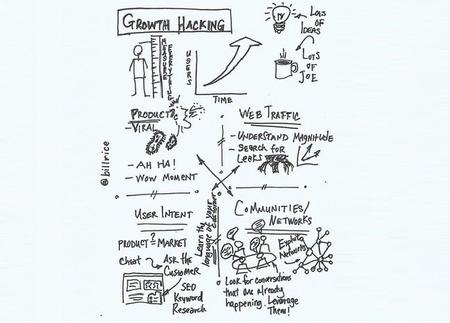 GROWTH HACKING
LOTS
OF
IDEAS
MEASURE
EVERYTHING
USERS
TIME
LOTS
OF
JOE
PRODUCT
- VIRAL
- AH HA!
- WOW MOMENT
WEB TRAFFIC
- UNDERSTAND MAGNITUDE
- SEARCH FOR
LEAKS
@billrice
Learn the
language of your
customer
USER INTENT
PRODUCT ?= MARKET
Chat
ASK THE
CUSTOMER
SEO
Keyword
RESEARCH
COMMUNITIES/
NETWORKS
Exploit
Networks
Look for conversations
that are already
happening. Leverage
Them!